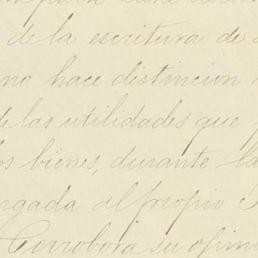 de la escritura de
no hace distincion
de las utilidades que
los bienes, durante la
ngada al propio
Corrobora su opini